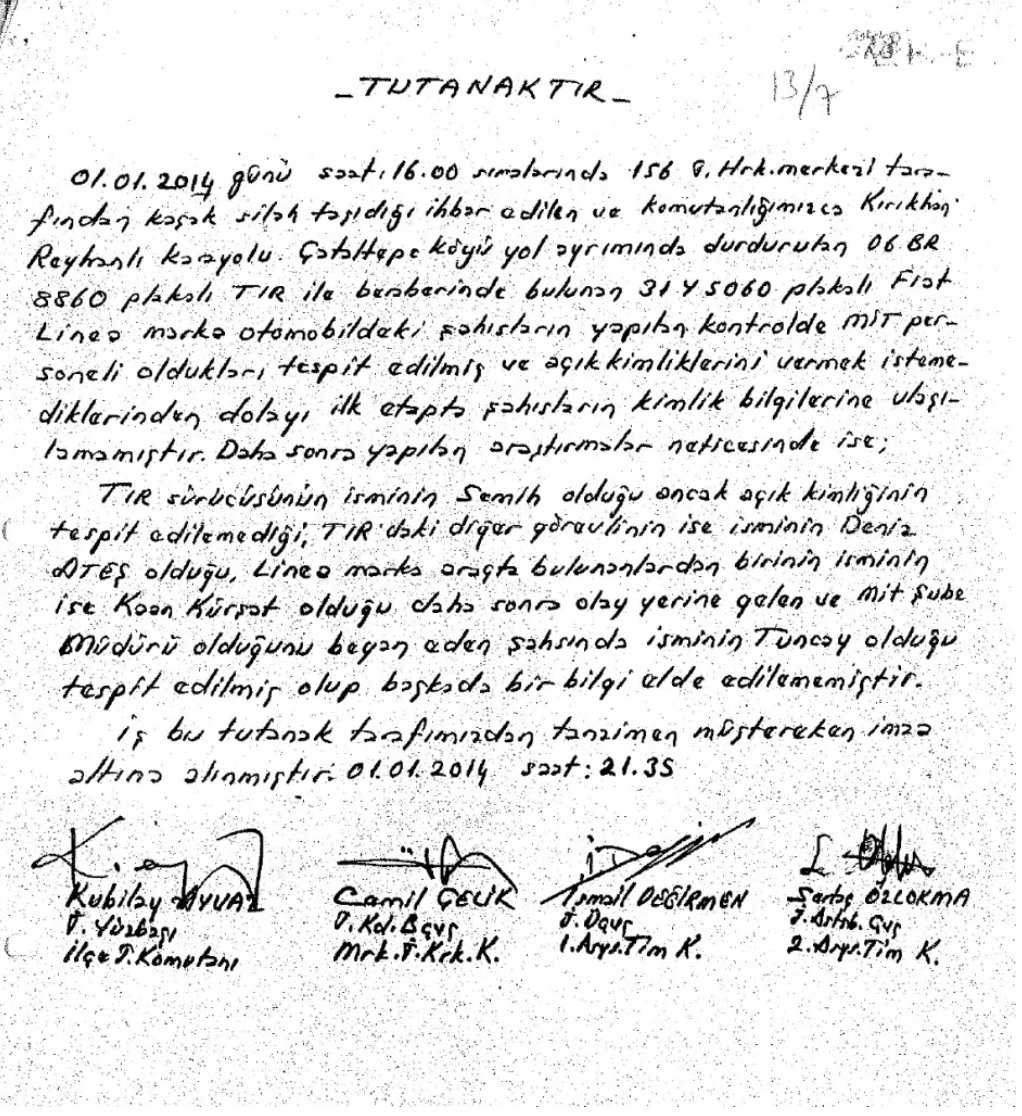 _TUTANAKTIR_
13/7
01.01.2014 günü saat:16.00 sıralarında 156 J. Hrk.merkezi tara-
fından kaçak silah taşıdığı ihbar edilen ve komutanlığımızca Kırıkhan
Reyhanlı karayolu. Çataltepe köyü yol ayrımında durdurulan 06 BR
8860 plakalı TIR ile beraberinde bulunan 31 Y 5060 plakalı Fiat
Linea marka otomobildeki şahısların yapılan kontrolde MİT per-
soneli oldukları tespit edilmiş ve açık kimliklerini vermek isteme-
diklerinden dolayı ilk etapta şahısların kimlik bilgilerine ulaşı-
lamamıştır. Daha sonra yapılan araştırmalar neticesinde ise;
TIR sürücüsünün isminin Semih olduğu ancak açık kimliğinin
tespit edilemediği, TIR'daki diğer görevlinin ise isminin Deniz
ATEŞ olduğu, Linea marka araçta bulunanlardan birinin isminin
ise Kaan Kürşat olduğu daha sonra olay yerine gelen ve Mit Şube
Müdürü olduğunu beyan eden şahsında isminin Tuncay olduğu
tespit edilmiş olup başkada bir bilgi elde edilememiştir.
iş bu tutanak tarafımızdan tanzimen müştereken imza
altına alınmıştır. 01.01.2014 saat: 21.35
Kubilay AYVAZ Camil ÇELİK İsmail DEĞİRMEN Sertaç ÖZLOKMA
J. Yüzbaşı J. Kd. Bçvş J. Üçvş J. Astsb. Çvş
İlçe J. Komutanı Mrk. J. Krk. K. 1. Asys. Tim K. 2. Asys. Tim K.